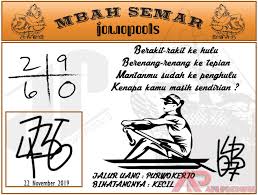 MBAH SEMAR
fornopools
2 9
6 0
Berakit-rakit ke hulu
Berenang-renang ke tepian
Mantanmu sudah ke penghulu
Kenapa kamu masih sendirian ?
22 November 2019
JALUR UANG : PURWOKERTO
BINATANGNYA : KECIL